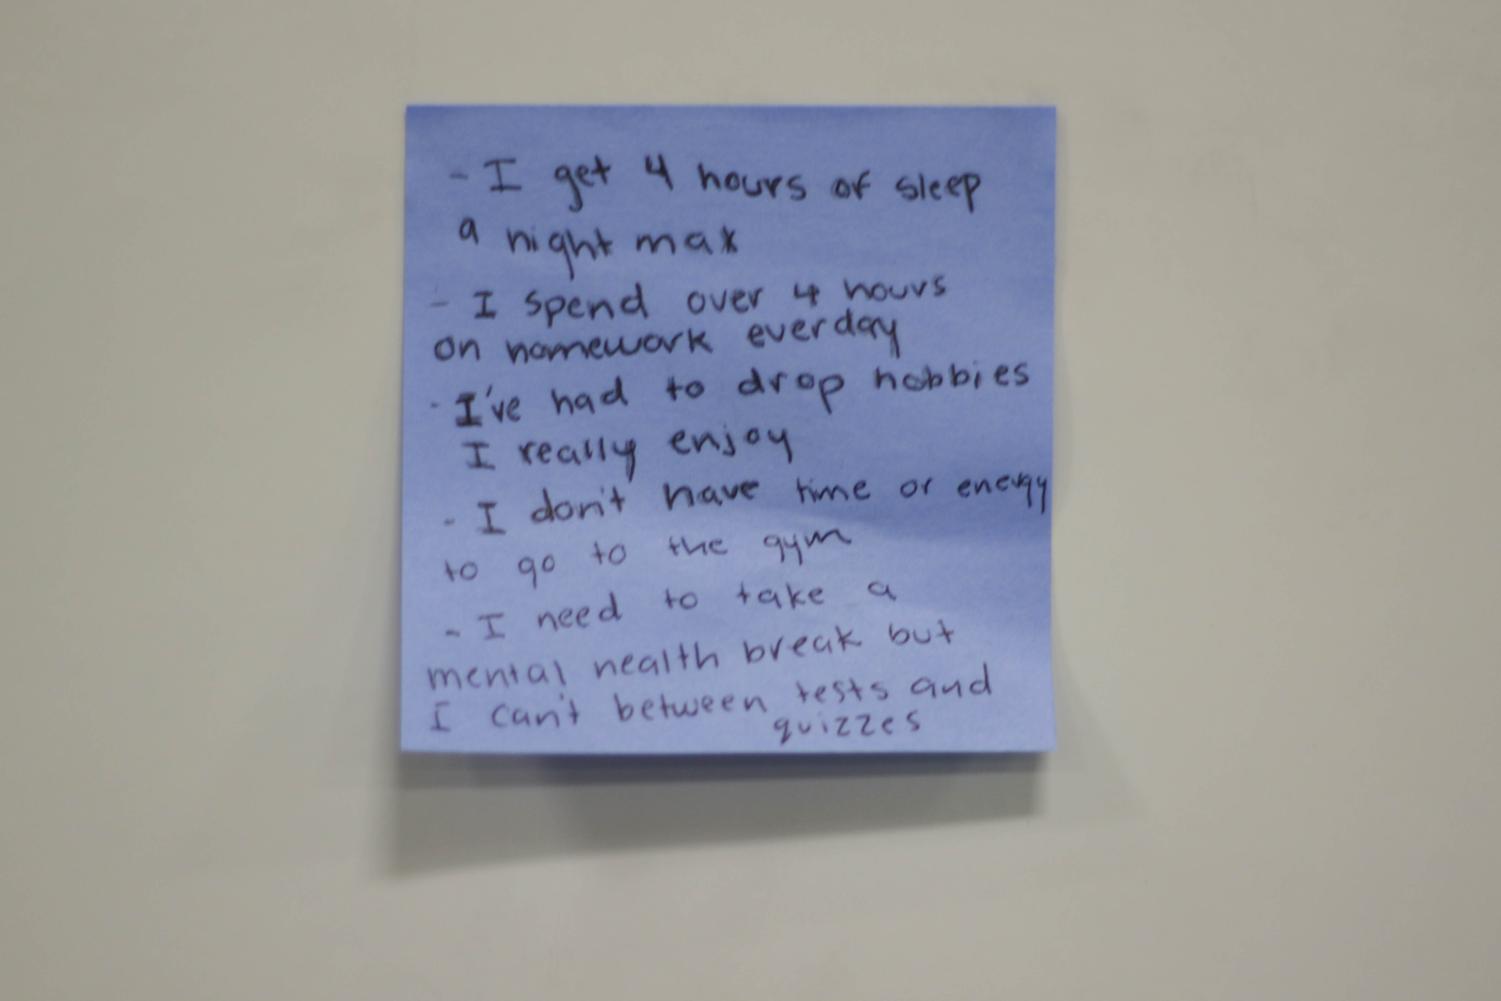 - I get 4 hours of sleep
a night max
- I spend over 4 hours
on homework everday
- I've had to drop hobbies
I really enjoy
- I don't have time or energy
to go to the gym
- I need to take a
mental health break but
I can't between tests and
quizzes